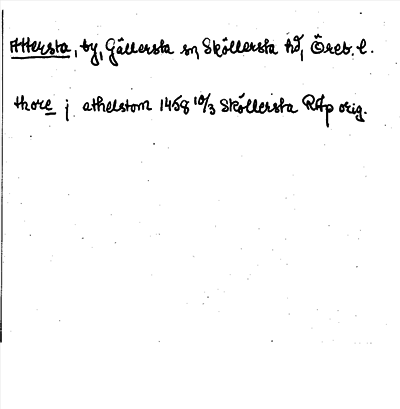 Attersta, by, Gällersta sn Sköllersta hd, Öreb. l.
thore j athelstom 1458 10/3 Sköllersta RAp orig.